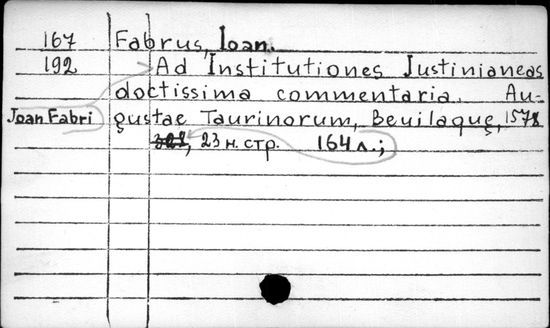 167 Fabrus, Ioan.
192 Ad Institutiones Justinianeas
doctissima commentaria. Au-
Joan Fabri gustae Taurinorum, Beuilaque, 1578
23 н. стр. 164 л.;